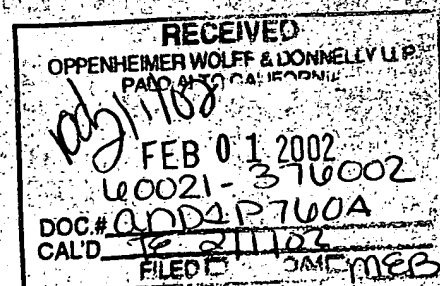 RECEIVED
OPPENHEIMER WOLFF & DONNELLY LLP
PALO ALTO CALIFORNIA
FEB 01 2002
60021-376002
DOC.# AND1P760A
CAL'D 2/1/02
FILED MEB